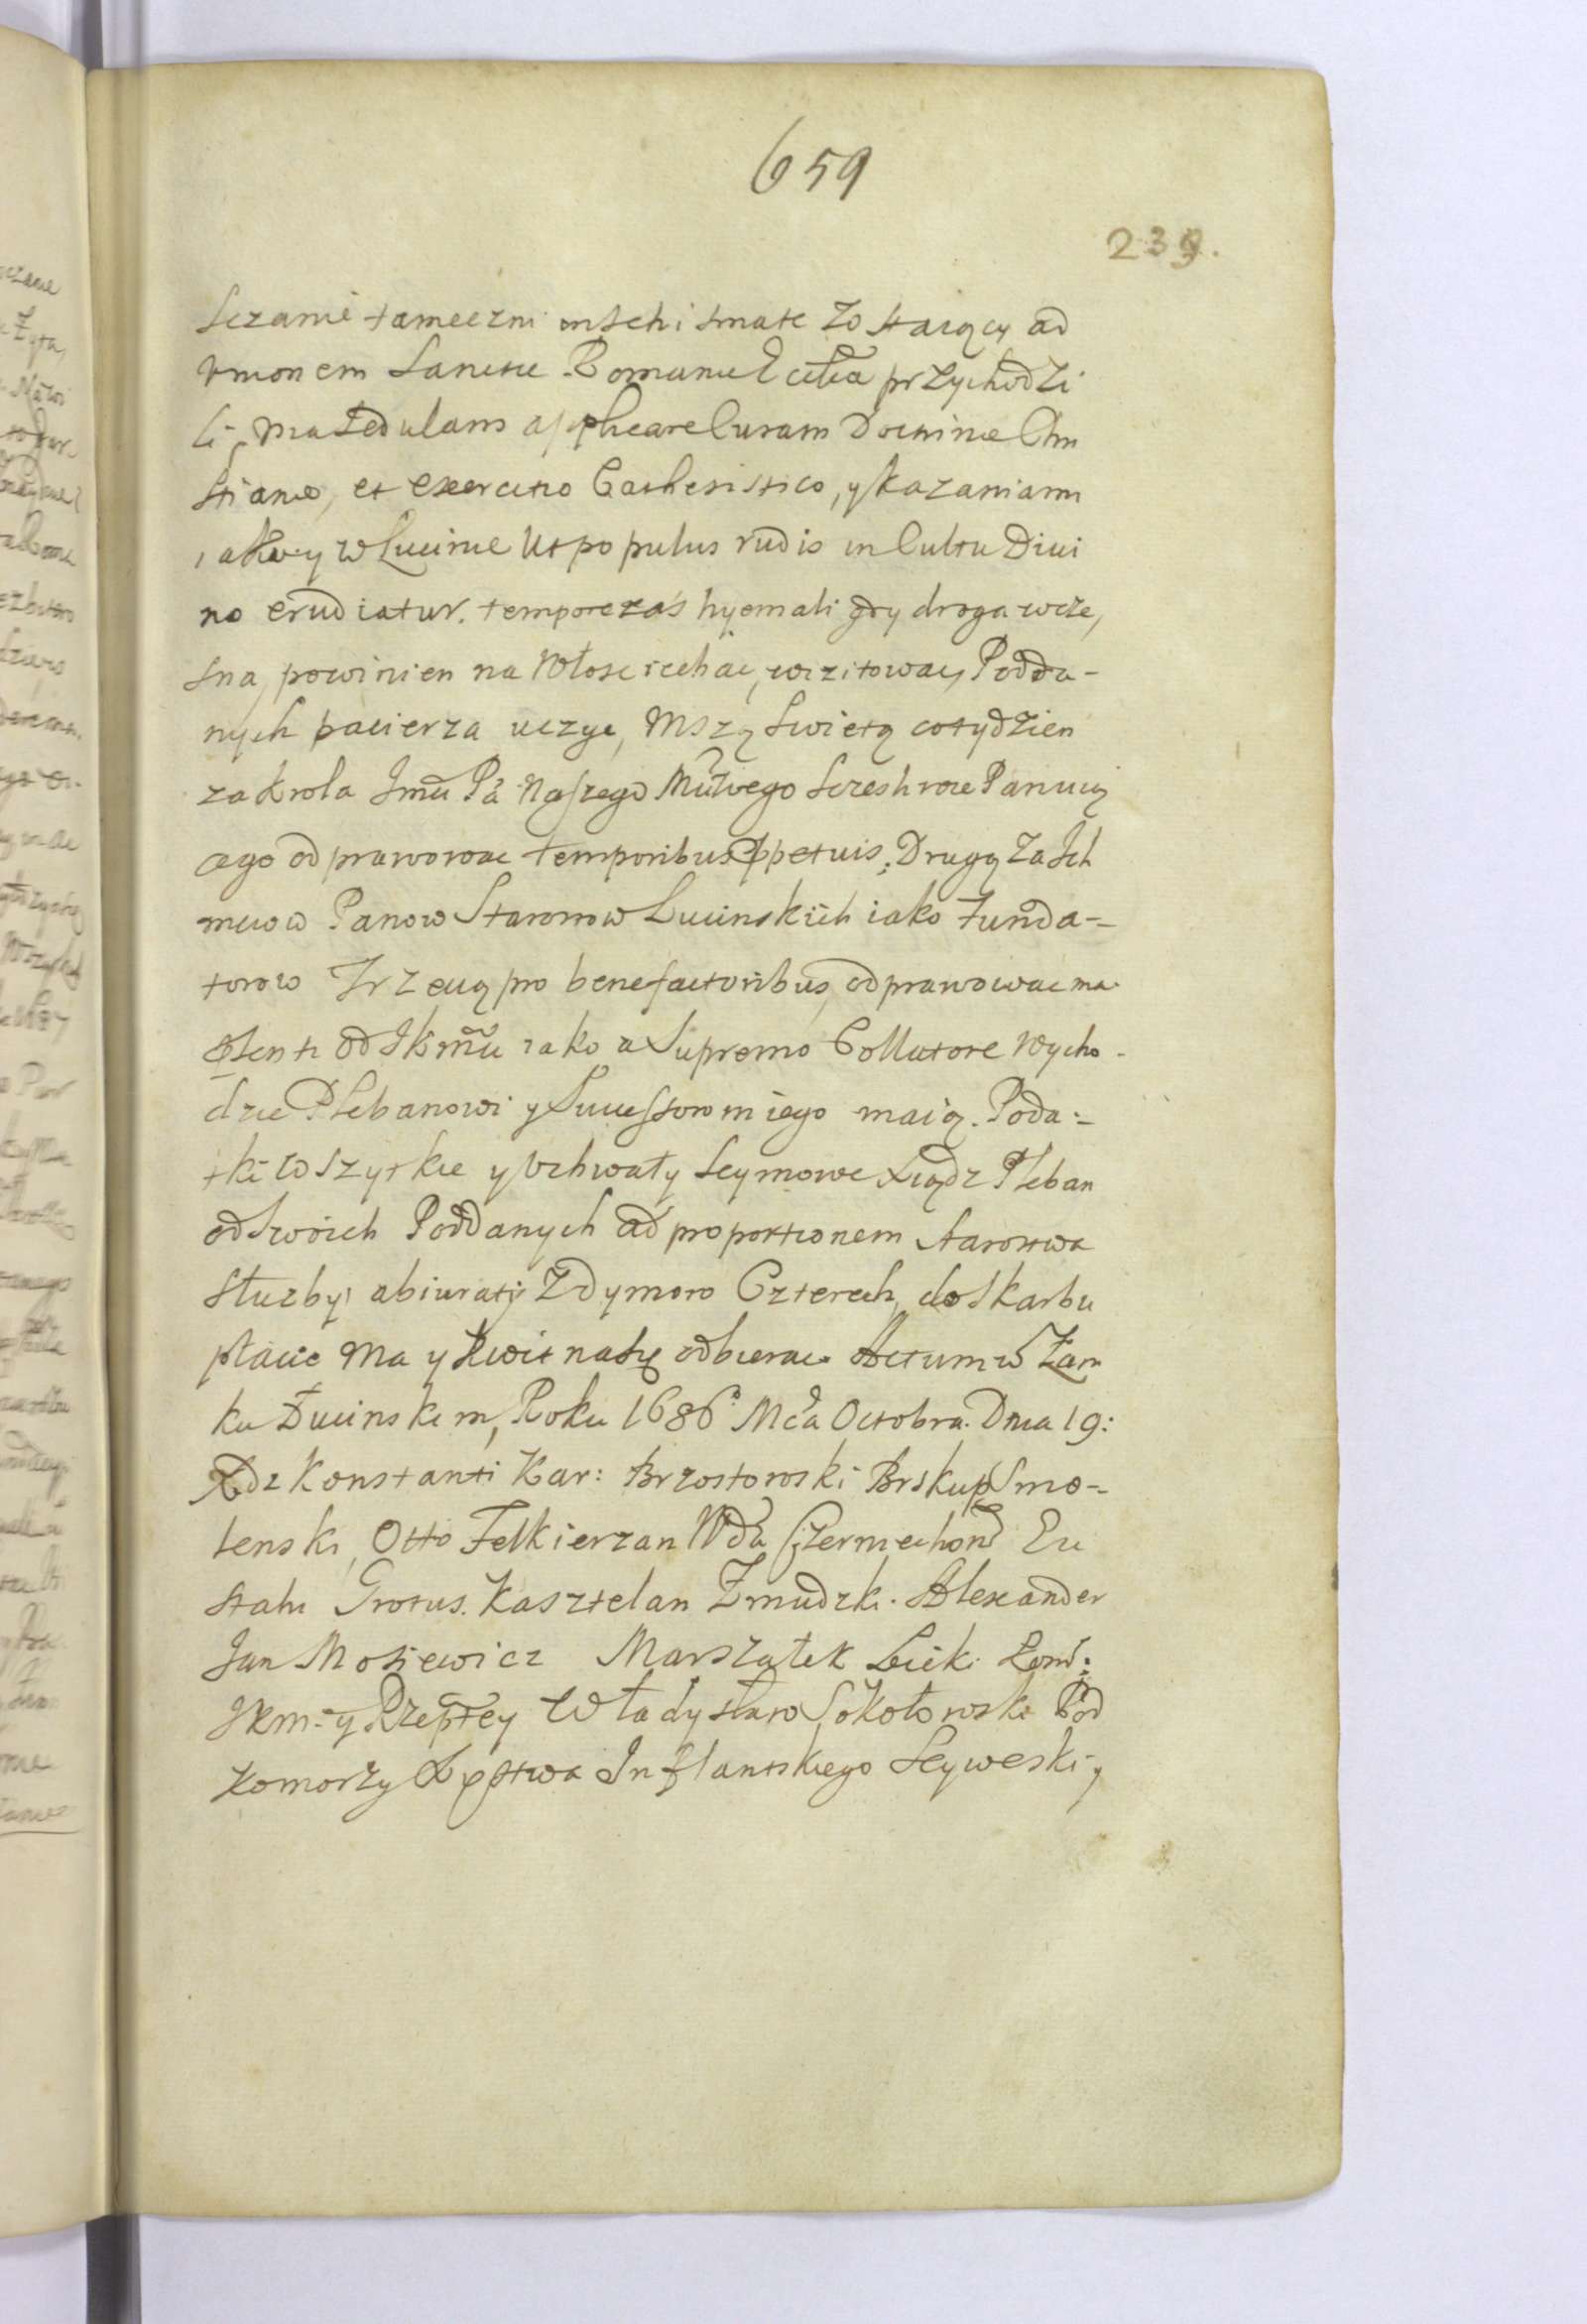 659
239.
Sczanie tameczni in schismate zostaiący ad
Vnionem Sanctae Romanae Ecclia przychodzi
li. Ma Sedulam applicare Curam Doctrinae Chri
stianae, et exercitio Cathesistico, y kazaniami
iako y w Lucinie Ut populus rudis in Cultu Diui
no erudiatur. tempore zaś hyemali gdy droga wcze,
sna, powinien na Włosciechac, wizitowac, Podda-
nych pacierza uczyc, Mszą Swietą co tydzien
za Krola Jmci Pa Naszego Młwego Szczesliwie Panuią
cego odprawowac temporibus ppetuis, Drugą za Ich
mciow Panow Starostow Lucinskich iako Funda-
torow Trzecią pro benefactoribus, odprawowac ma.
senti od JKmci iako a Supremo Collatore Wycho-
dzic Plebanowi y Successorom iego maią. Poda-
tki wszytkie y Vchwały Seymowe Xiądz Pleban
od Swoich Poddanych ad proportionem Starostwa
Służby abiuraty z dymow Czterech, do Skarbu
płacic ma y Kwit na się odbierac. Actum w Zam
ku Lucinskim, Roku 1686 Mca Octobra. Dnia 19:
Xdz Konstanti Kar: Brzostowski Biskup Smo-
lenski, Otto Felkierzan Wda Czerniechow Eu
stahi Grotus. Kasztelan Zmudzki. Alexander
Jan Mosiewicz Marszałek Lidzki
JKm: y Rzeptey Władysław Sokołowski Pod
Komorzy Xięstwa Inflantskiego Seyweski y